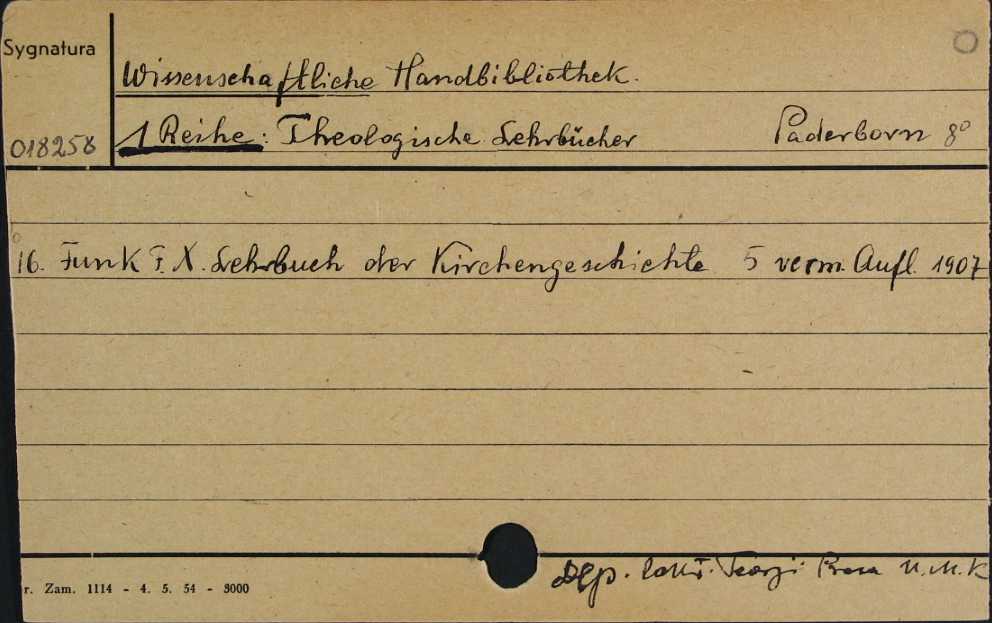 Sygnatura
Wissenschaftliche Handbibliothek.
018258
1 Reihe: Theologische Lehrbücher Paderborn 8°
16. Funk F. X. Lehrbuch der Kirchengeschichte 5 verm. Aufl. 1907
r. Zam. 1114 - 4. 5. 54 - 3000
Dep. Teorji Prawa U.M.K